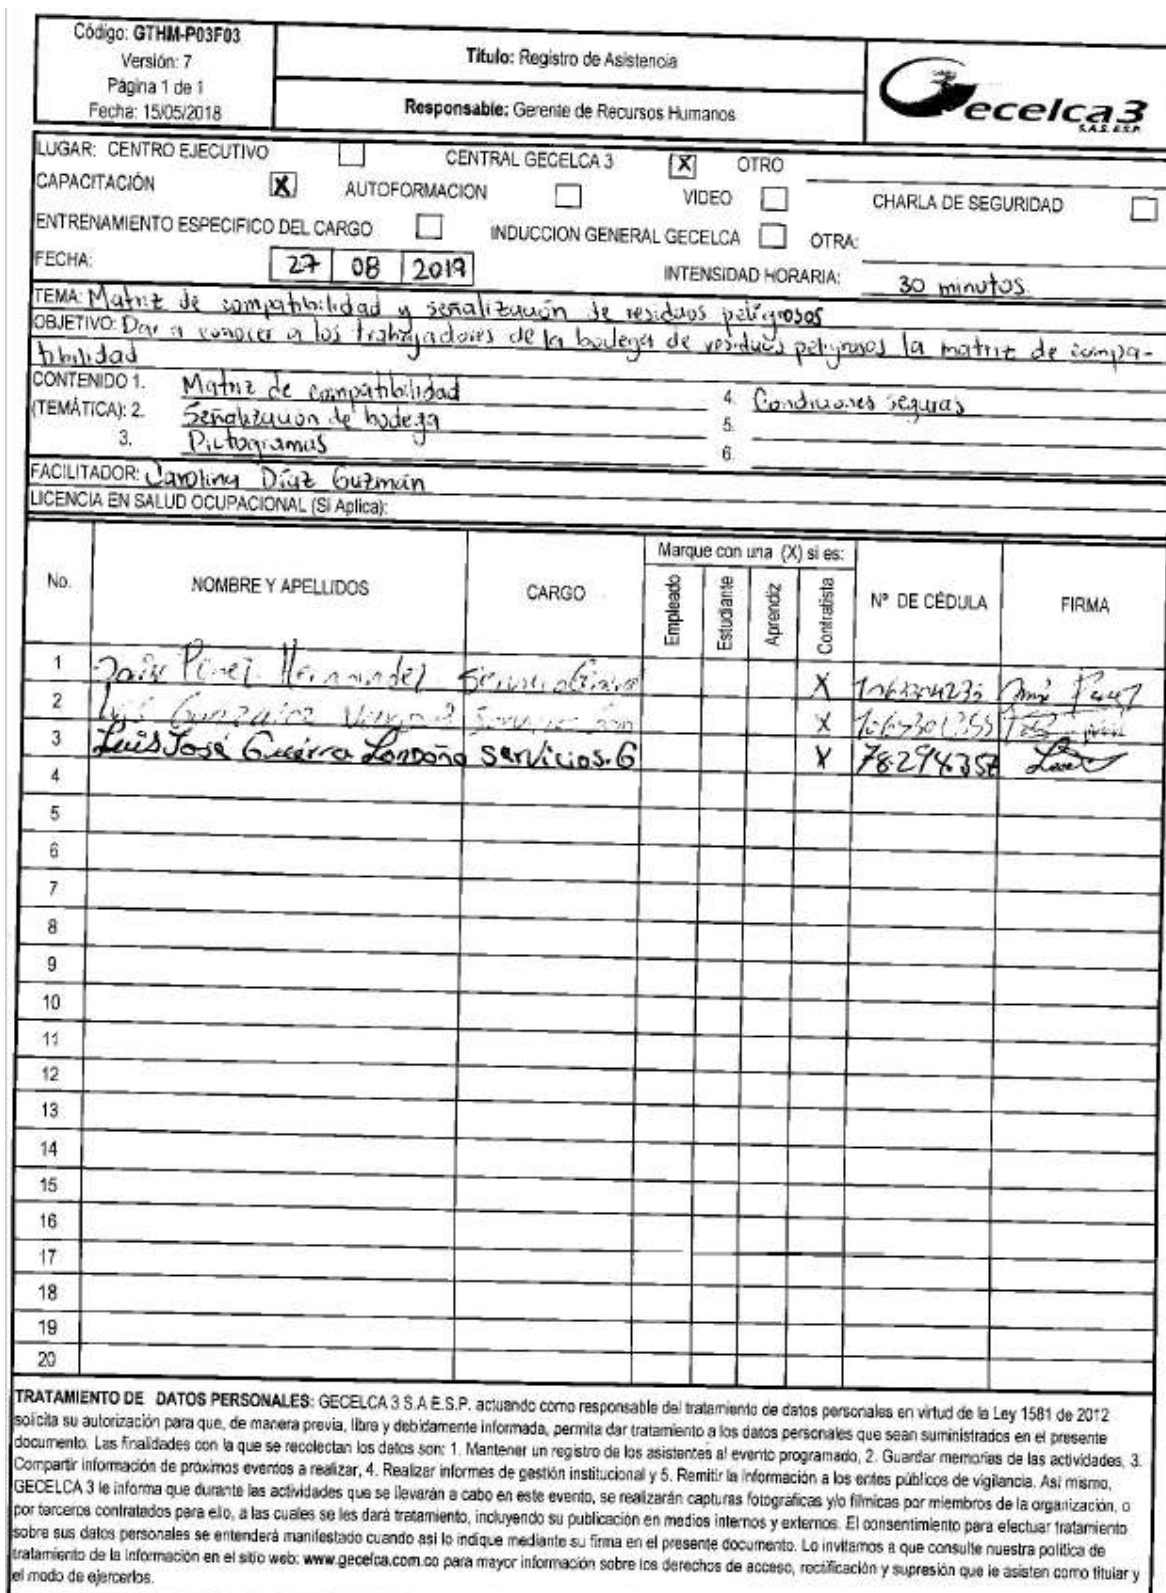 Código: GTHM-P03F03
Versión: 7
Página 1 de 1
Fecha: 15/05/2018
Titulo: Registro de Asistencia
Responsable: Gerente de Recursos Humanos
Gecelca3
S.A.S. E.S.P.
LUGAR: CENTRO EJECUTIVO CENTRAL GECELCA 3 X OTRO
CAPACITACIÓN X AUTOFORMACION VIDEO CHARLA DE SEGURIDAD
ENTRENAMIENTO ESPECIFICO DEL CARGO INDUCCION GENERAL GECELCA OTRA:
FECHA: 27 08 2019 INTENSIDAD HORARIA: 30 minutos
TEMA: Matriz de compatibilidad y señalización de residuos peligrosos
OBJETIVO: Dar a conocer a los trabajadores de la bodega de residuos peligrosos la matriz de compa-
tibilidad
CONTENIDO 1. Matriz de compatibilidad 4. Condiciones seguras
(TEMÁTICA): 2. Señalización de bodega 5.
3. Pictogramas 6.
FACILITADOR: Carolina Díaz Guzmán
LICENCIA EN SALUD OCUPACIONAL (Si Aplica):
No. NOMBRE Y APELLIDOS CARGO Marque con una (X) si es: Nº DE CÉDULA FIRMA
Empleado Estudiante Aprendiz Contratista
1 Perez Hernandez X Perez
2 Luis Gonzalez X
3 Luis José Guerra Londoño Servicios.G X
4
5
6
7
8
9
10
11
12
13
14
15
16
17
18
19
20
TRATAMIENTO DE DATOS PERSONALES: GECELCA 3 S.A E.S.P. actuando como responsable del tratamiento de datos personales en virtud de la Ley 1581 de 2012
solicita su autorización para que, de manera previa, libre y debidamente informada, permita dar tratamiento a los datos personales que sean suministrados en el presente
documento. Las finalidades con la que se recolectan los datos son: 1. Mantener un registro de los asistentes al evento programado, 2. Guardar memorias de las actividades, 3.
Compartir información de próximos eventos a realizar, 4. Realizar informes de gestión institucional y 5. Remitir la información a los entes públicos de vigilancia. Así mismo,
GECELCA 3 le informa que durante las actividades que se llevarán a cabo en este evento, se realizarán capturas fotográficas y/o fílmicas por miembros de la organización, o
por terceros contratados para ello, a las cuales se les dará tratamiento, incluyendo su publicación en medios internos y externos. El consentimiento para efectuar tratamiento
sobre sus datos personales se entenderá manifestado cuando así lo indique mediante su firma en el presente documento. Lo invitamos a que consulte nuestra política de
tratamiento de la información en el sitio web: www.gecelca.com.co para mayor información sobre los derechos de acceso, rectificación y supresión que le asisten como titular y
el modo de ejercerlos.